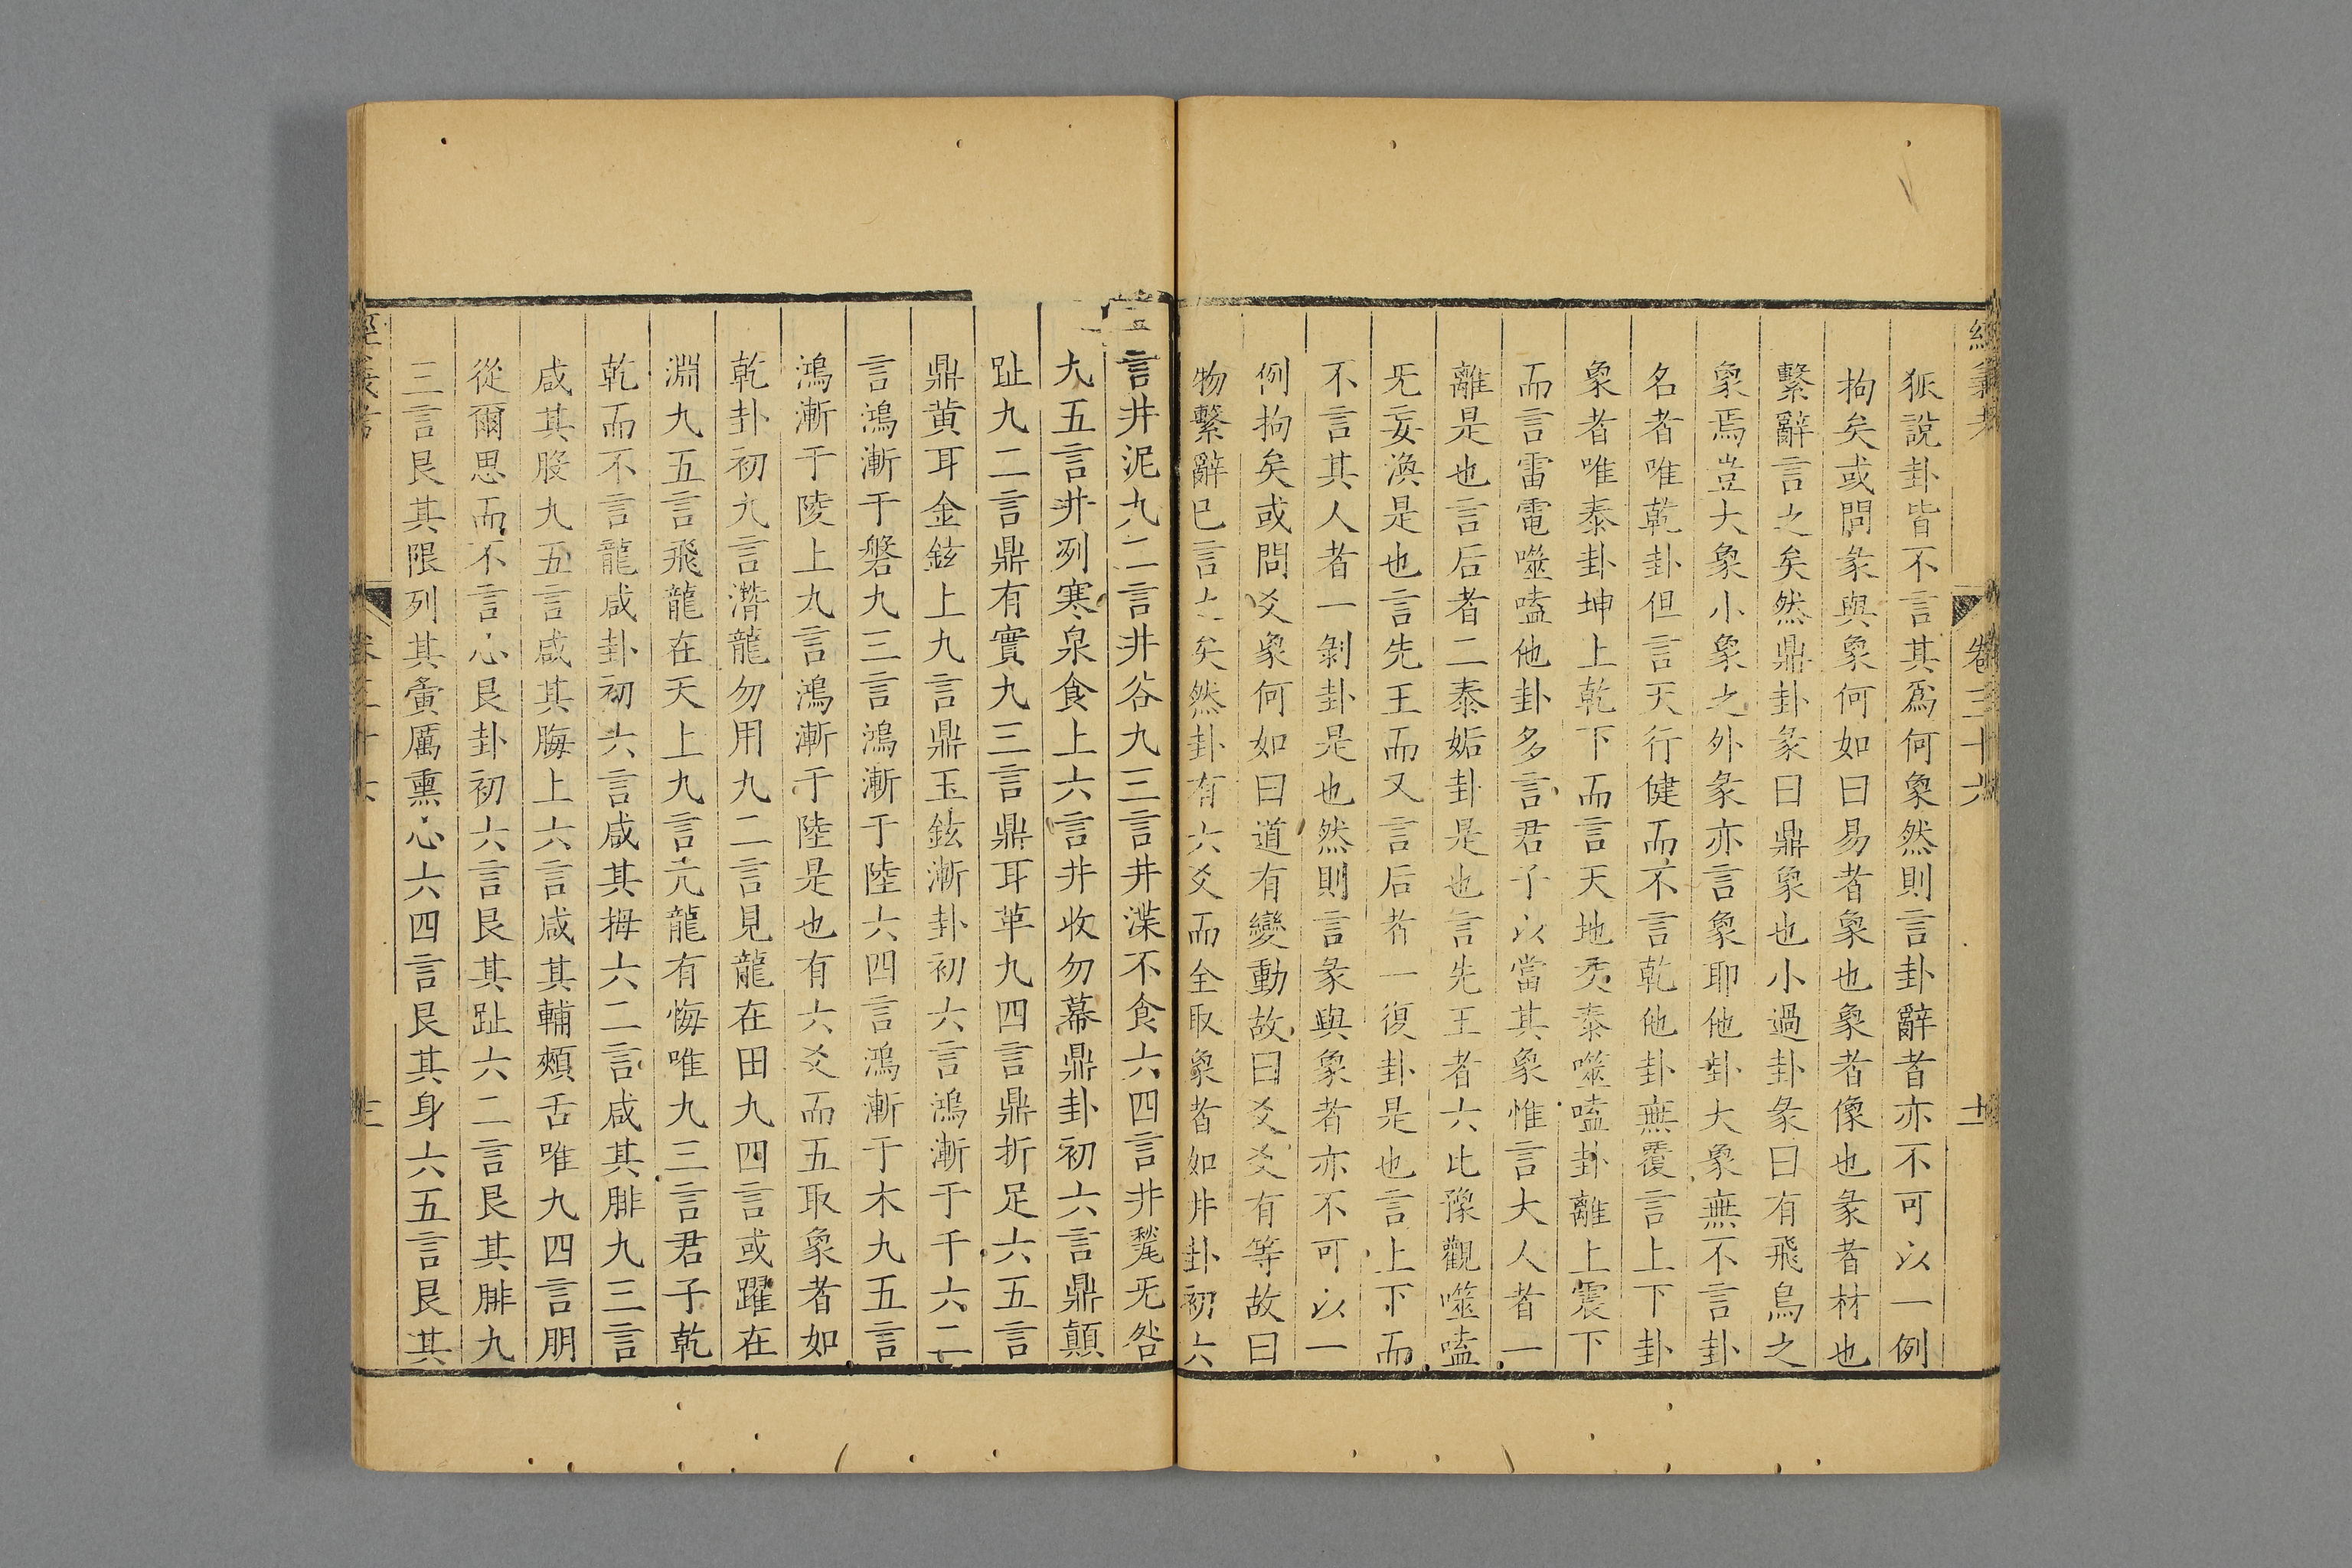 經義考
卷三十六
十一
狐說卦皆不言其爲何象然則言卦辭者亦不可以一例
拘矣或問彖與象何如曰易者象也象者像也彖者材也
繫辭言之矣然鼎卦彖曰鼎象也小過卦彖曰有飛鳥之
象焉豈大象小象之外彖亦言象耶他卦大象無不言卦
名者唯乾卦但言天行健而不言乾他卦無覆言上下卦
象者唯泰卦坤上乾下而言天地交泰噬嗑卦離上震下
而言雷電噬嗑他卦多言君子以當其象惟言大人者一
離是也言后者二泰姤卦是也言先王者六比豫觀噬嗑
无妄渙是也言先王而又言后者一復卦是也言上下而
不言其人者一剝卦是也然則言彖與象者亦不可以一
例拘矣或問爻象何如曰道有變動故曰爻爻有等故曰
物繫辭已言之矣然卦有六爻而全取象者如井卦初六
言井泥九二言井谷九三言井渫不食六四言井甃无咎
九五言井冽寒泉食上六言井收勿幕鼎卦初六言鼎顛
趾九二言鼎有實九三言鼎耳革九四言鼎折足六五言
鼎黄耳金鉉上九言鼎玉鉉漸卦初六言鴻漸于干六二
言鴻漸于磐九三言鴻漸于陸六四言鴻漸于木九五言
鴻漸于陵上九言鴻漸于陸是也有六爻而五取象者如
乾卦初九言濳龍勿用九二言見龍在田九四言或躍在
淵九五言飛龍在天上九言亢龍有悔唯九三言君子乾
乾而不言龍咸卦初六言咸其拇六二言咸其腓九三言
咸其股九五言咸其脢上六言咸其輔頰舌唯九四言朋
從爾思而不言心艮卦初六言艮其趾六二言艮其腓九
三言艮其限列其夤厲熏心六四言艮其身六五言艮其
經義考